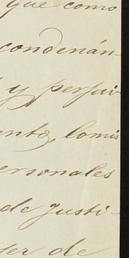 que como
condenán-
y perjui-
ento, comis
ersonales
de Justi-
ser de